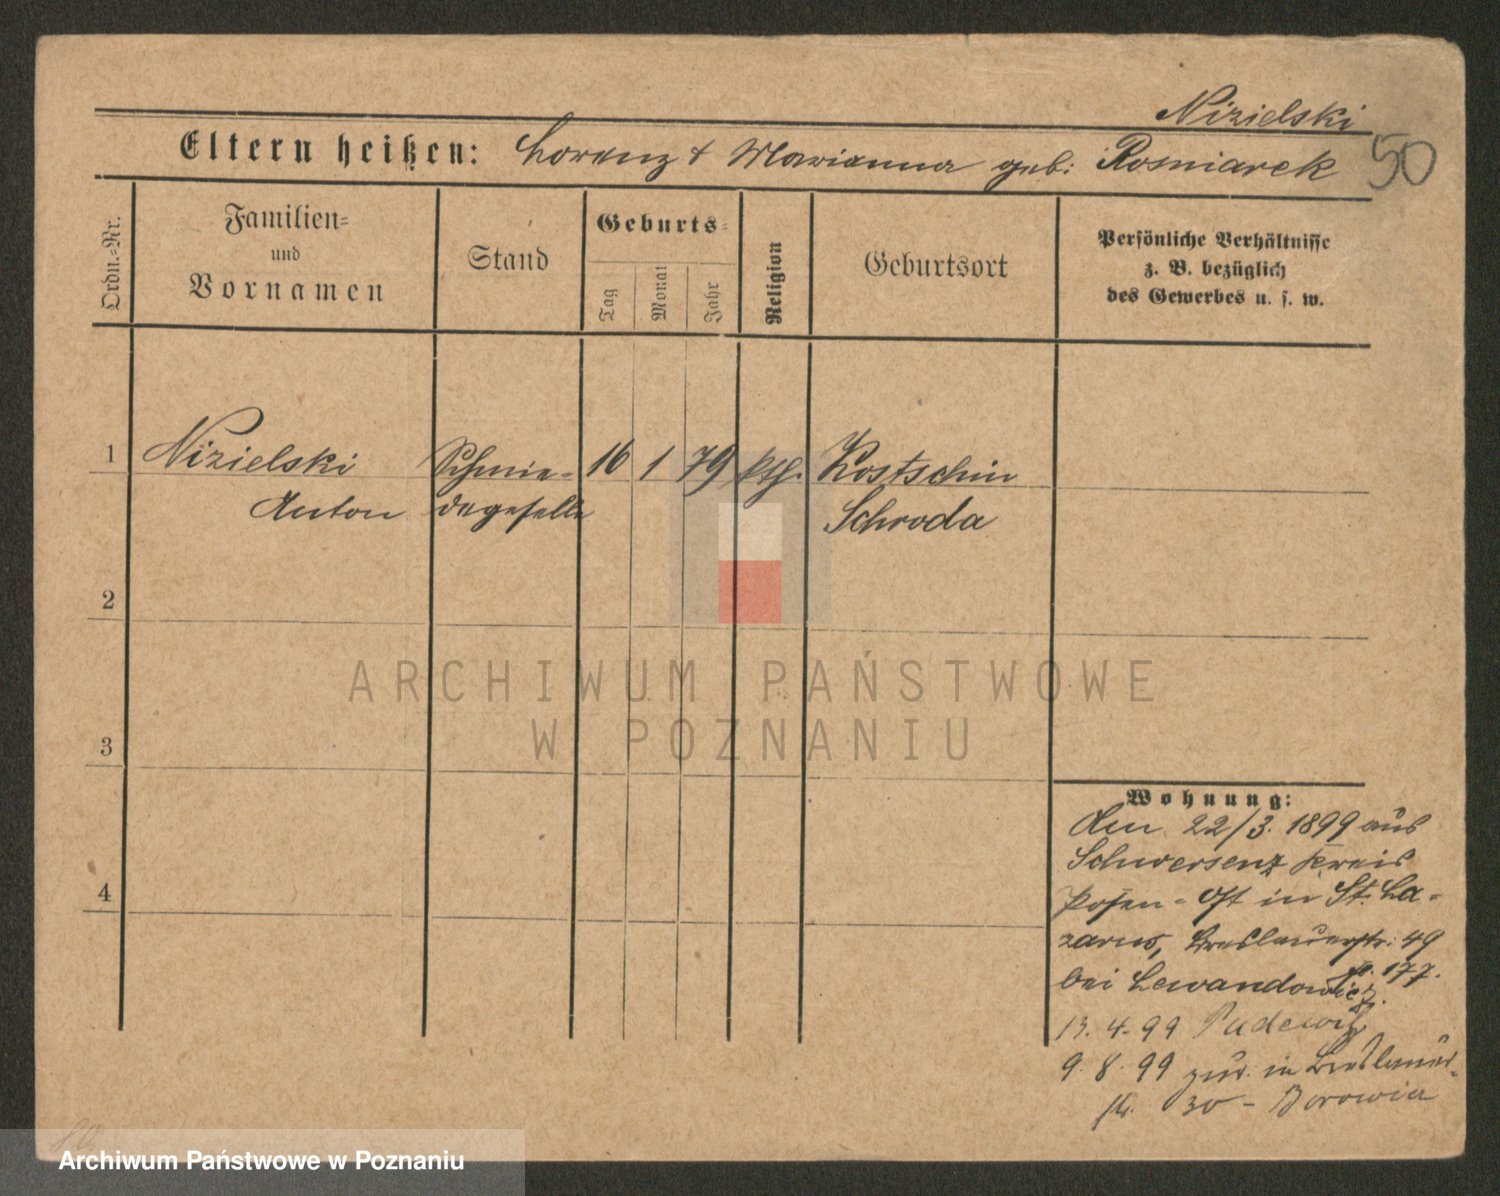 Nizielski
Eltern heißen: Lorenz & Marianna geb: Rosniarek
50
Ordn.=Nr.
Familien=
und
Vornamen
Stand
Geburts=
Tag
Monat
Jahr
Religion
Geburtsort
Persönliche Verhältnisse
z. B. bezüglich
des Gewerbes u. s. w.
1 Nizielski Schmie= 16 1 79 kth. Kostschin
Anton degeselle Schroda
2
ARCHIWUM PAŃSTWOWE
W POZNANIU
3
Wohnung:
Am 22/3. 1899 aus
Schwersenz Kreis
4
Posen-Ost in St. La-
zarus, Breslauerstr: 49
bei Lewandowicz. 177.
13. 4. 99 Pudewitz
9. 8. 99 zur. in Breslauer-
str. 30 - Borowia
Archiwum Państwowe w Poznaniu